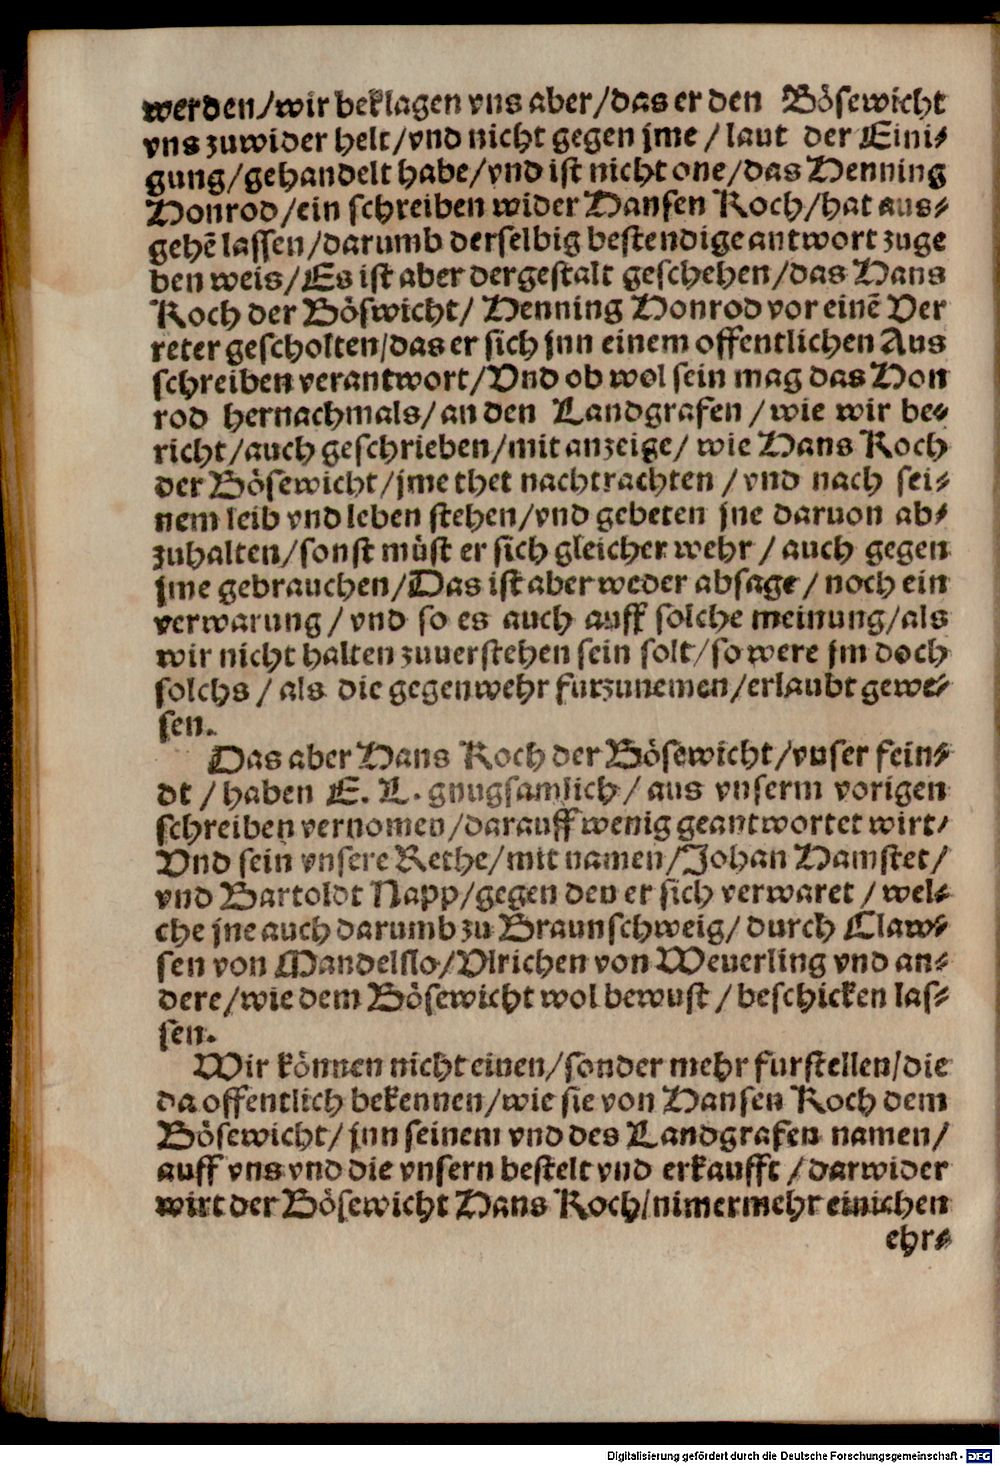 werden/wir beklagen vns aber/das er den Bösewicht
vns zuwider helt/vnd nicht gegen jme / laut der Eini⸗
gung/gehandelt habe/vnd ist nicht one/das Henning
Honrod/ein schreiben wider Hansen Koch/hat aus⸗
gehẽ lassen/darumb derselbig bestendige antwort zuge
ben weis/Es ist aber dergestalt geschehen/das Hans
Koch der Böswicht/ Henning Honrod vor einẽ Ver
reter gescholten/das er sich jnn einem offentlichen Aus
schreiben verantwort/Vnd ob wol sein mag das Hon
rod hernachmals/an den Landgrafen /wie wir be⸗
richt/auch geschrieben/mit anzeige/ wie Hans Koch
der Bösewicht/jme thet nachtrachten /vnd nach sei⸗
nem leib vnd leben stehen/vnd gebeten jne daruon ab⸗
zuhalten/sonst müst er sich gleicher wehr / auch gegen
jme gebrauchen/Das ist aber weder absage / noch ein
verwarung / vnd so es auch auff solche meinung/als
wir nicht halten zuuerstehen sein solt/so were jm doch
solchs / als die gegenwehr furzunemen/erlaubt gewe⸗
sen.
Das aber Hans Koch der Bösewicht/vnser fein⸗
dt / haben E. L. gnugsamlich/ aus vnserm vorigen
schreiben vernomen/darauff wenig geantwortet wirt/
Vnd sein vnsere Rethe/mit namen/Johan Hamstet/
vnd Bartoldt Napp/gegen den er sich verwaret / wel⸗
che jne auch darumb zu Braunschweig/ durch Claw⸗
sen von Mandelslo/Vlrichen von Weuerling vnd an⸗
dere/wie dem Bösewicht wol bewust / beschicken las⸗
sen.
Wir können nicht einen/sonder mehr furstellen/die
da offentlich bekennen/wie sie von Hansen Koch dem
Bösewicht/ jnn seinem vnd des Landgrafen namen/
auff vns vnd die vnsern bestelt vnd erkaufft /darwider
wirt der Bösewicht Hans Koch/nimermehr einichen
ehr⸗
Digitalisierung gefördert durch die Deutsche Forschungsgemeinschaft - DFG